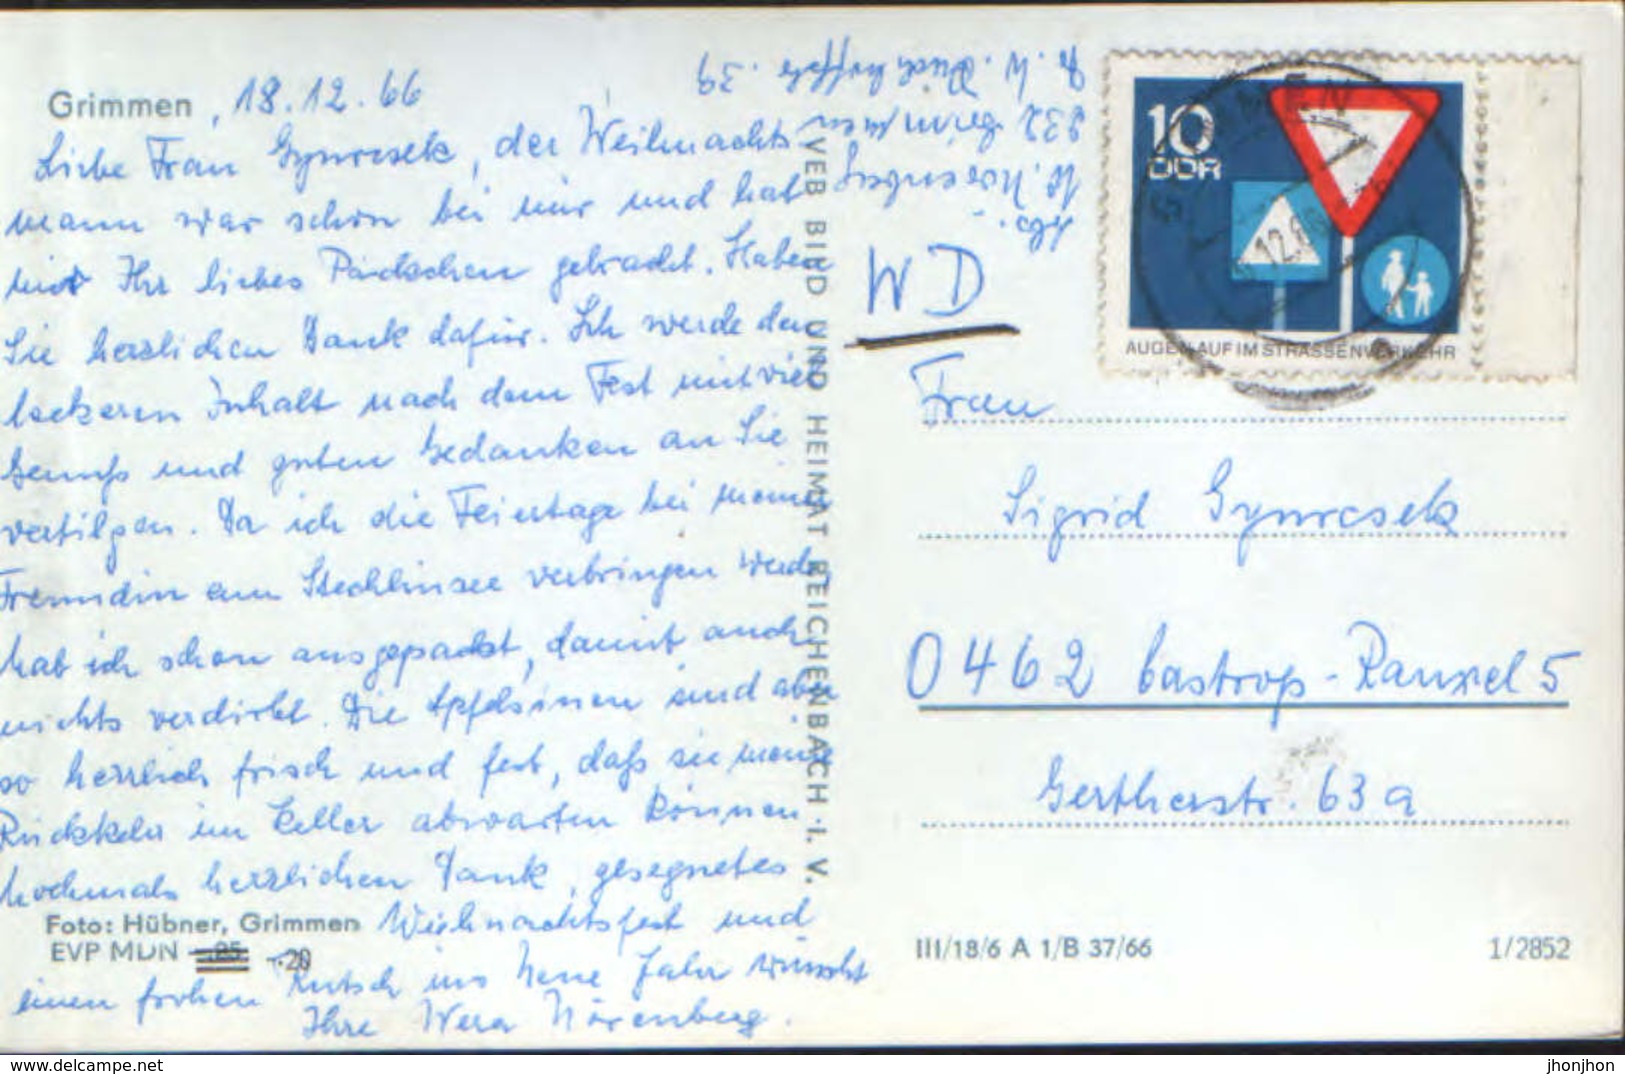 Grimmen, 18.12.66
Liebe Frau Gynrcsek, der Weihnachts-
mann war schon bei mir und hat
mir Ihr liebes Päckchen gebracht. Haben
Sie herzlichen Dank dafür. Ich werde den
leckeren Inhalt nach dem Fest mit viel
Genuß und guten Gedanken an Sie
vertilgen. Da ich die Feiertage bei meiner
Freundin am Stechlinsee verbringen werde,
hab ich schon ausgepackt, damit auch
nichts verdirbt. Die Apfelsinen sind aber
so herrlich frisch und fest, daß sie meine
Rückkehr im Keller abwarten können
Nochmals herzlichen Dank, gesegnetes
Weihnachtsfest und
einen frohen Rutsch ins Neue Jahr wünscht
Ihre Wera Nörenberg.
Foto: Hübner, Grimmen
EVP MDN -.25 -.20
VEB BILD UND HEIMAT REICHENBACH · I. V.
Abs.:
W. Nörenberg
232 Grimmen
39
WD
10
DDR
AUGEN AUF IM STRASSENVERKEHR
Frau
Sigrid Gynrcsek
0462 Castrop-Rauxel 5
Gertherstr. 63a
III/18/6 A 1/B 37/66
1/2852
delcampe.net
jhonjhon